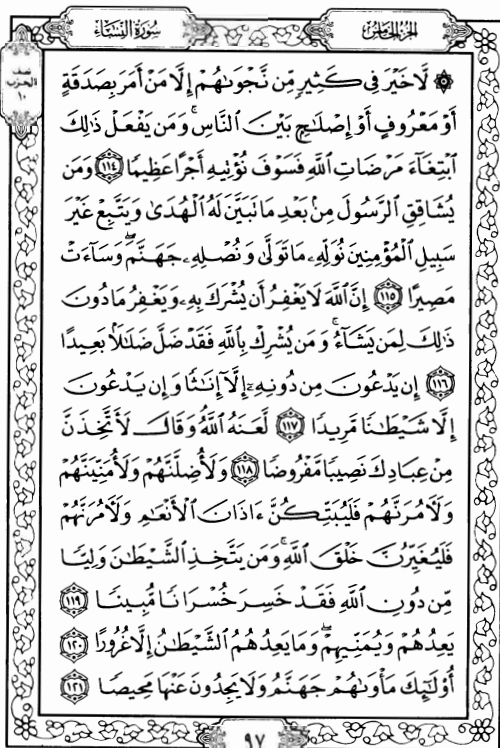 سُورَةُ النِّسَاءِ
الجُزْءُ الخَامِسُ
نصف
الحزب
١٠
۞ لَّا خَيْرَ فِي كَثِيرٍ مِّن نَّجْوَىٰهُمْ إِلَّا مَنْ أَمَرَ بِصَدَقَةٍ
أَوْ مَعْرُوفٍ أَوْ إِصْلَٰحٍ بَيْنَ النَّاسِ ۚ وَمَن يَفْعَلْ ذَٰلِكَ
ابْتِغَآءَ مَرْضَاتِ اللَّهِ فَسَوْفَ نُؤْتِيهِ أَجْرًا عَظِيمًا ١١٤ وَمَن
يُشَاقِقِ الرَّسُولَ مِنۢ بَعْدِ مَا تَبَيَّنَ لَهُ الْهُدَىٰ وَيَتَّبِعْ غَيْرَ
سَبِيلِ الْمُؤْمِنِينَ نُوَلِّهِۦ مَا تَوَلَّىٰ وَنُصْلِهِۦ جَهَنَّمَ ۖ وَسَآءَتْ
مَصِيرًا ١١٥ إِنَّ اللَّهَ لَا يَغْفِرُ أَن يُشْرَكَ بِهِۦ وَيَغْفِرُ مَا دُونَ
ذَٰلِكَ لِمَن يَشَآءُ ۚ وَمَن يُشْرِكْ بِاللَّهِ فَقَدْ ضَلَّ ضَلَٰلًۢا بَعِيدًا
١١٦ إِن يَدْعُونَ مِن دُونِهِۦٓ إِلَّآ إِنَٰثًا وَإِن يَدْعُونَ
إِلَّا شَيْطَٰنًا مَّرِيدًا ١١٧ لَّعَنَهُ اللَّهُ ۘ وَقَالَ لَأَتَّخِذَنَّ
مِنْ عِبَادِكَ نَصِيبًا مَّفْرُوضًا ١١٨ وَلَأُضِلَّنَّهُمْ وَلَأُمَنِّيَنَّهُمْ
وَلَءَامُرَنَّهُمْ فَلَيُبَتِّكُنَّ ءَاذَانَ الْأَنْعَٰمِ وَلَءَامُرَنَّهُمْ
فَلَيُغَيِّرُنَّ خَلْقَ اللَّهِ ۚ وَمَن يَتَّخِذِ الشَّيْطَٰنَ وَلِيًّا
مِّن دُونِ اللَّهِ فَقَدْ خَسِرَ خُسْرَانًا مُّبِينًا ١١٩
يَعِدُهُمْ وَيُمَنِّيهِمْ ۖ وَمَا يَعِدُهُمُ الشَّيْطَٰنُ إِلَّا غُرُورًا ١٢٠
أُو۟لَٰٓئِكَ مَأْوَىٰهُمْ جَهَنَّمُ وَلَا يَجِدُونَ عَنْهَا مَحِيصًا ١٢١
٩٧